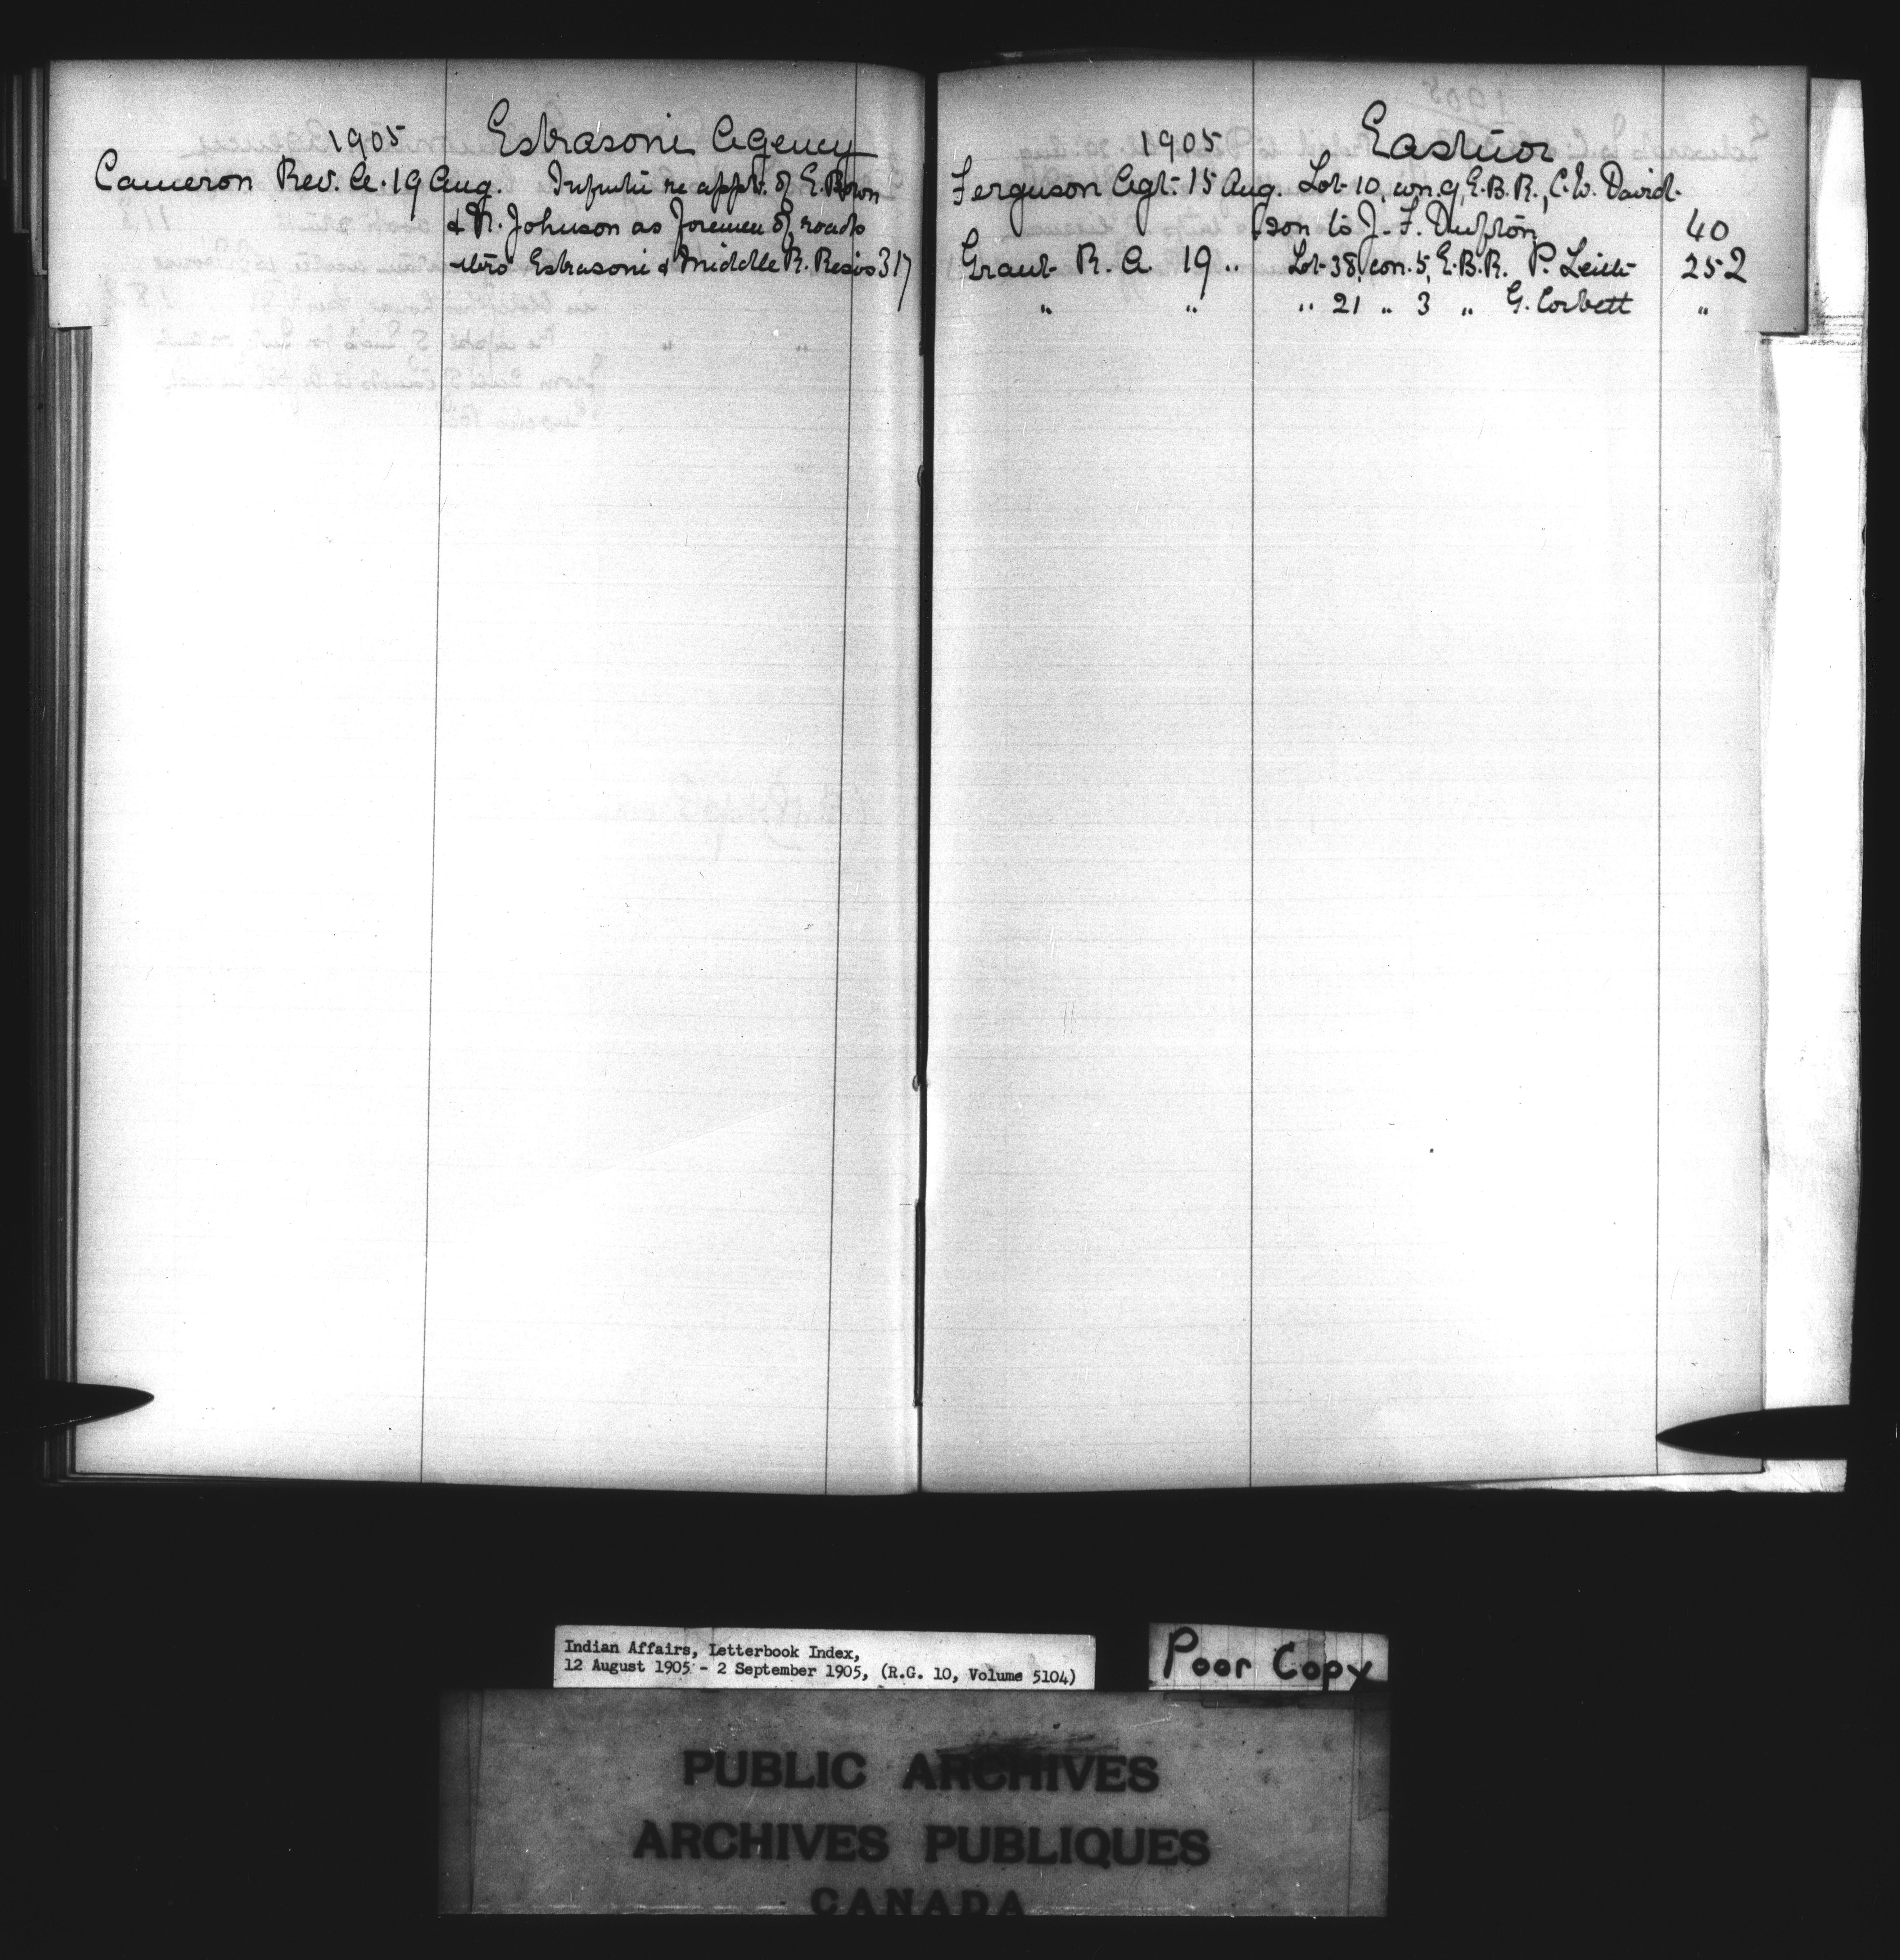 1905 Eskasoni Agency
Cameron Rev. A. 19 Aug. re appt. of E. Brown
& N. Johnson as foremen of roads
thro' Eskasoni & Middle R. Resvs 317
1905 Eastnor
Ferguson Agt. 15 Aug. Lot 10, con. 9, E.B.R., C. W. David-
son to J. F. Dufton 40
Grant R. A. 19 " Lot 38, con. 5, E.B.R. P. 252
" " " 21 " 3 " G. Corbett "
Indian Affairs, Letterbook Index,
12 August 1905 - 2 September 1905, (R.G. 10, Volume 5104)
Poor Copy
PUBLIC ARCHIVES
ARCHIVES PUBLIQUES
CANADA